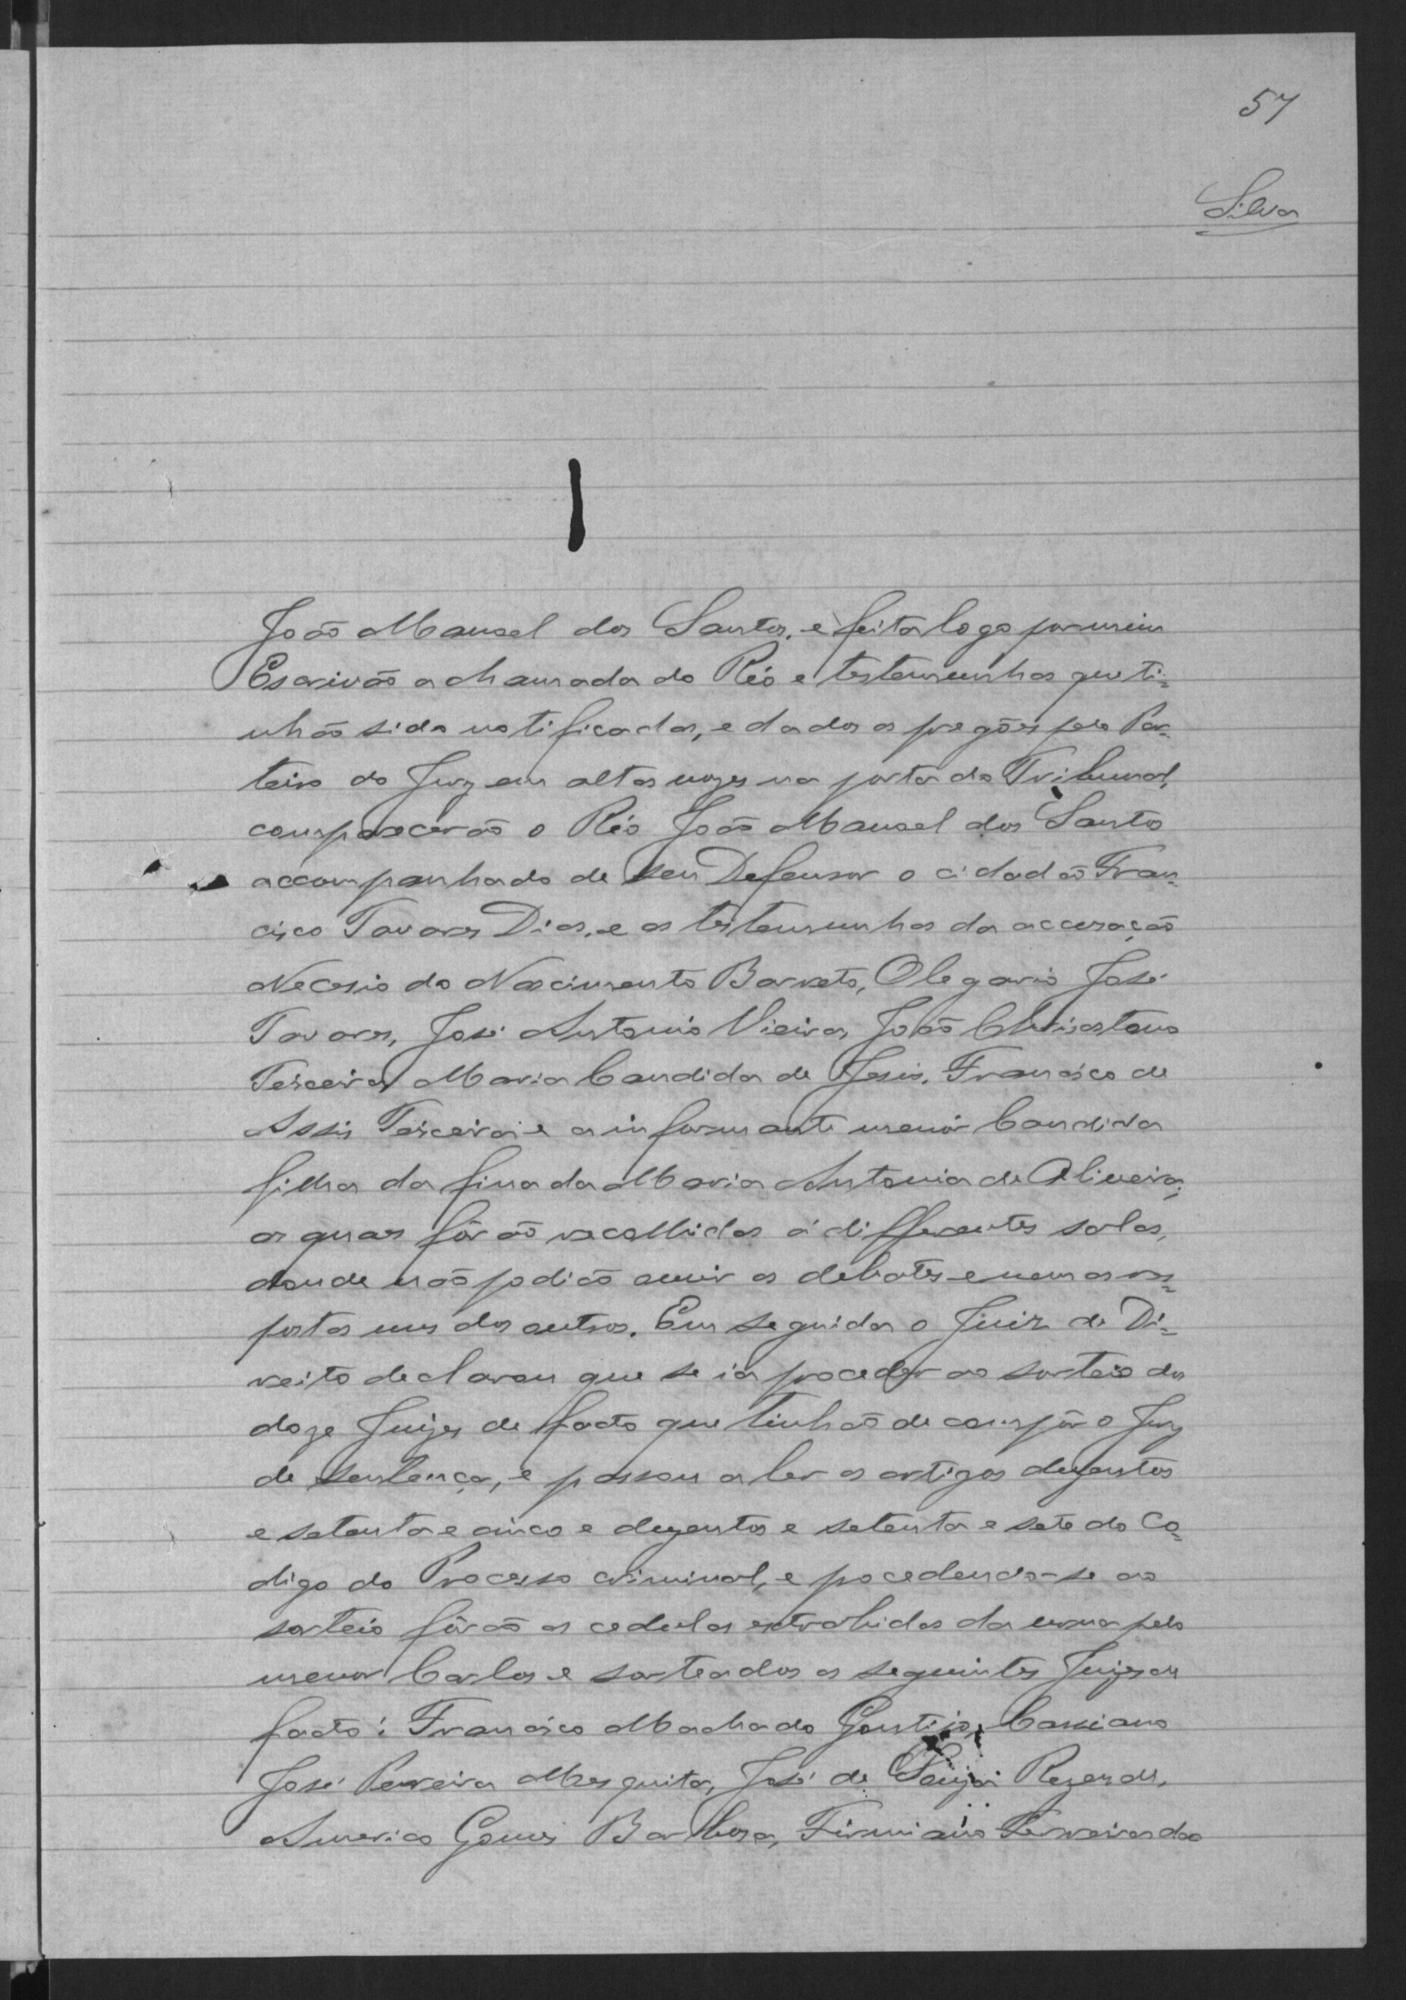 57
Silva
João Manoel dos Santos, e feita logo por mim
Escrivão a chamada do Réo e testemunhas que ti=
nhão sido notificadas, e dados os pregões pelo Por=
teiro do Jury em altas vozes na porta do Tribunal,
comparecerão o Réo João Manoel dos Santos
accompanhado de seu Defensor o cidadão Fran=
cisco Tavares Dias, e as testemunhas da accusação
Necesio do Nascimento Barreto, Olegario José
Tavares, José Antonio Vieira, João Chrisostomo
Terceira, Maria Candida de Jesus, Francisco de
Assis Terceira e a informante menor Candida
filha da finada Maria Antonia de Oliveira;
as quaes fôrão recolhidas á differentes salas,
donde não podião ouvir os debates e nem as res=
postas uns dos outros. Em seguida o Juiz de Di=
reito declarou que se ia proceder ao sorteio dos
doze Juizes de facto que tinhão de compôr o Jury
de sentença, e passou a ler os artigos duzentos
e setenta e cinco e duzentos e setenta e sete do Co=
digo do Processo criminal, e procedendo-se ao
sorteio fôrão as cedulas extrahidas da urna pelo
menor Carlos e sorteados os seguintes Juizes de
facto: Francisco Machado Cassiano
José Pereira Mesquita, José de Souza Rezende,
Americo Gomes Barbosa, Firmiano Ferreira dos